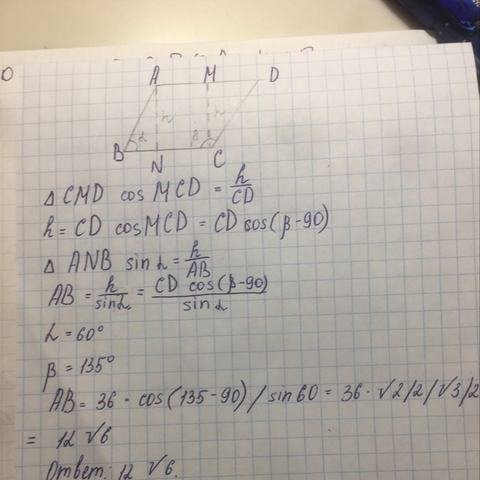 A M D
h h
α β
B N C
△ CMD cos MCD = h/CD
h = CD cosMCD = CD cos(β-90)
△ ANB sin α = h/AB
AB = h/sinα = CD cos(β-90)/sinα
α = 60°
β = 135°
AB = 36 · cos(135-90) / sin60 = 36 · √2/2/√3/2
= 12 √6
Ответ: 12 √6.